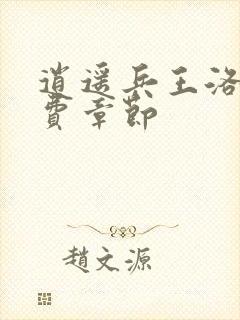 逍遥兵王洛
費章節
趙文源